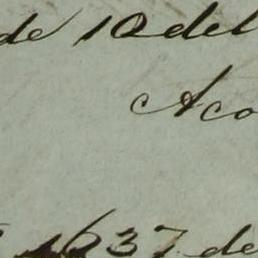 de 10 del
Aco
1637 de